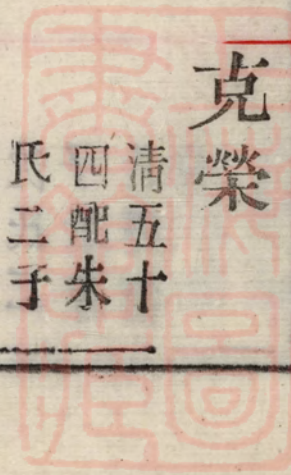 克榮
清五十
四配朱
氏二子